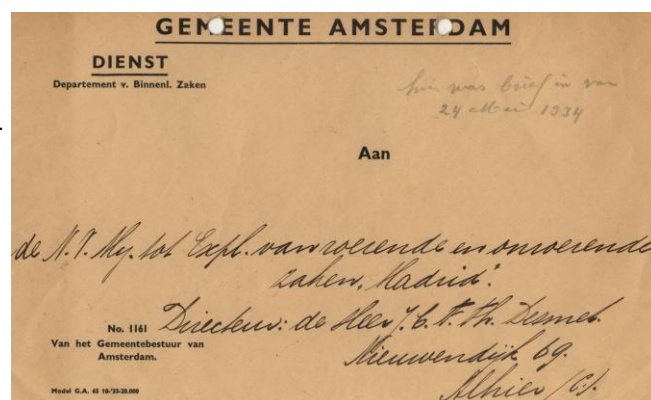 GEMEENTE AMSTERDAM
DIENST
Departement v. Binnenl. Zaken
hier was brief in van
24 Mei 1934
Aan
de N.V. My. tot Expl. van roerende en onroerende
zaken, "Madrid".
Directeur: de Heer J. C. F. Th. Desmet.
Nieuwendijk 69.
Alhier (C).
No. 1161
Van het Gemeentebestuur van
Amsterdam.
Model G.A. 65 10-'33-20.000